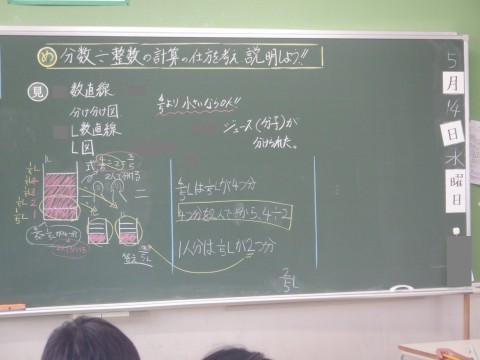 め 分数÷整数の計算の仕方を考え説明しよう!!
見 数直線
分け分け図
L数直線
L図
4/5より小さいならOK!!
ジュース(分子)が
分けられた。
5月14日水曜日
1/5L
4
3
2
1
式 4/5÷2=2/5
2人で分ける
答え 2/5L
4/5Lは1/5Lが4つ分
4つ分を2人で分けるから、4÷2
1人分は1/5Lが2つ分
2/5L